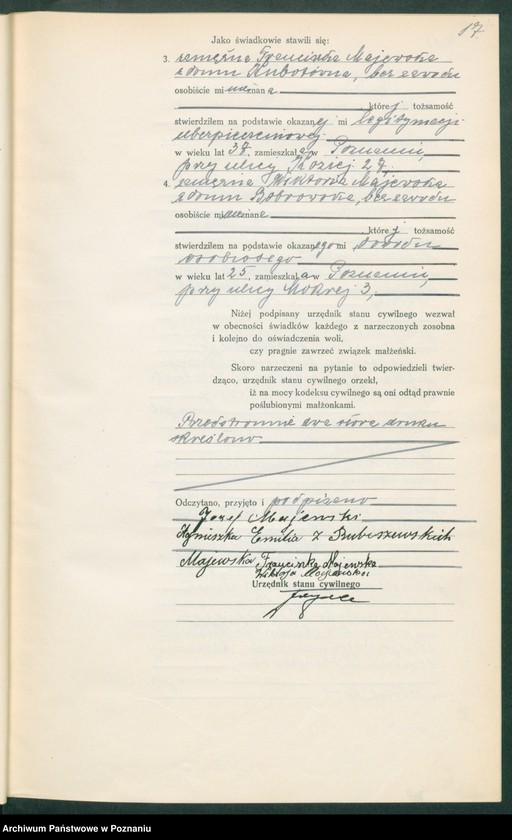 17.
Jako świadkowie stawili się:
3. zamężna Franciszka Majewska
z domu Kubotówna, bez zawodu
osobiście mi nieznana
której tożsamość
stwierdziłem na podstawie okazanej mi legitymacji
ubezpieczeniowej
w wieku lat 37, zamieszkała w Poznaniu,
przy ulicy Koziej 27,
4. zamężna Wiktoria Majewska
z domu Bobrowska, bez zawodu
osobiście mi nieznana
której tożsamość
stwierdziłem na podstawie okazanego mi dowodu
osobistego
w wieku lat 25, zamieszkała w Poznaniu,
przy ulicy Mokrej 3,
Niżej podpisany urzędnik stanu cywilnego wezwał
w obecności świadków każdego z narzeczonych zosobna
i kolejno do oświadczenia woli,
czy pragnie zawrzeć związek małżeński.
Skoro narzeczeni na pytanie to odpowiedzieli twier-
dząco, urzędnik stanu cywilnego orzekł,
iż na mocy kodeksu cywilnego są oni odtąd prawnie
poślubionymi małżonkami.
Przedstronnie dwa słowa druku
skreślono
Odczytano, przyjęto i podpisano
Józef Majewski
Agnieszka Emilia z Rubiszewskich
Majewska Franciszka Majewska
Wiktorja Majewska
Urzędnik stanu cywilnego
Archiwum Państwowe w Poznaniu